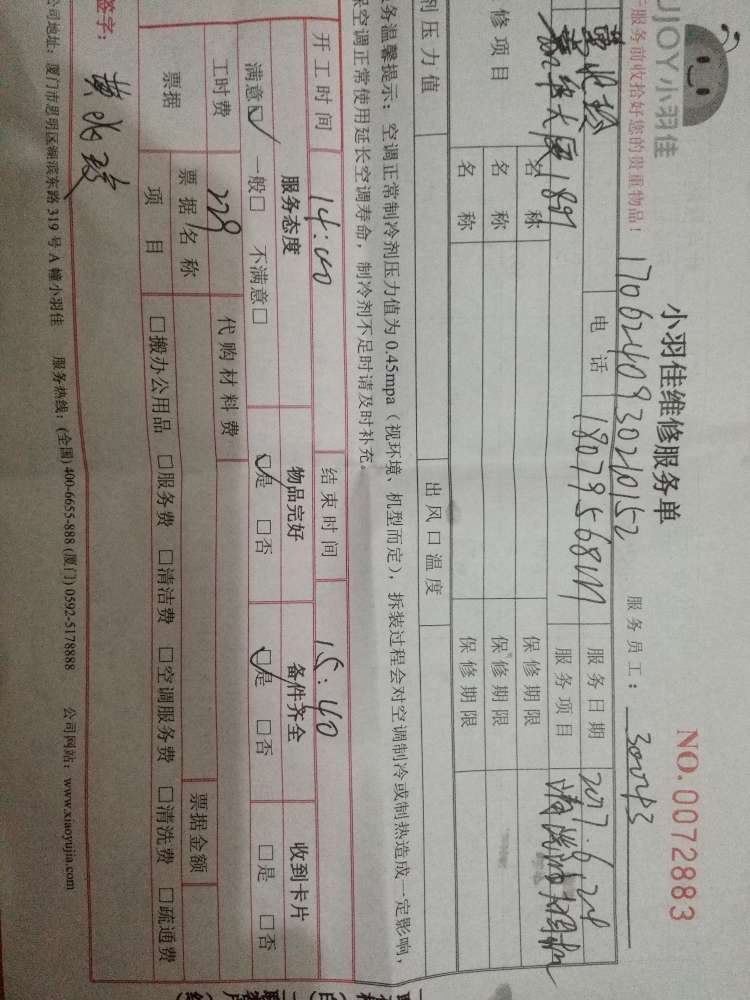 UJOY小羽佳
小羽佳维修服务单
NO.0072883
服务前收拾好您的贵重物品!
170624093021 0152
服务员工: 300243
电话
服务日期 2017.6.24
嘉华大厦
服务项目 清洗油烟机
修项目 名称 保修期限
名称 保修期限
名称 保修期限
剂压力值 出风口温度
务温馨提示:空调正常制冷剂压力值为 0.45mpa(视环境、机型而定),拆装过程会对空调制冷或制热造成一定影响,
空调正常使用延长空调寿命,制冷剂不足时请及时补充。
开工时间 14:00 结束时间 15:40
服务态度 物品完好 备件齐全 收到卡片
满意☑ 一般□ 不满意□ ☑是 □否 ☑是 □否 □是 □否
工时费 229 代购材料费
票据 票据名称 票据金额
项目 □搬办公用品 □服务费 □清洁费 □空调服务费 □清洗费 □疏通费
签字: 黄兆玲
公司地址:厦门市思明区湖滨东路 319 号 A 幢小羽佳 服务热线:(全国) 400-6655-888 (厦门) 0592-5178888 公司网站:www.xiaoyujia.com